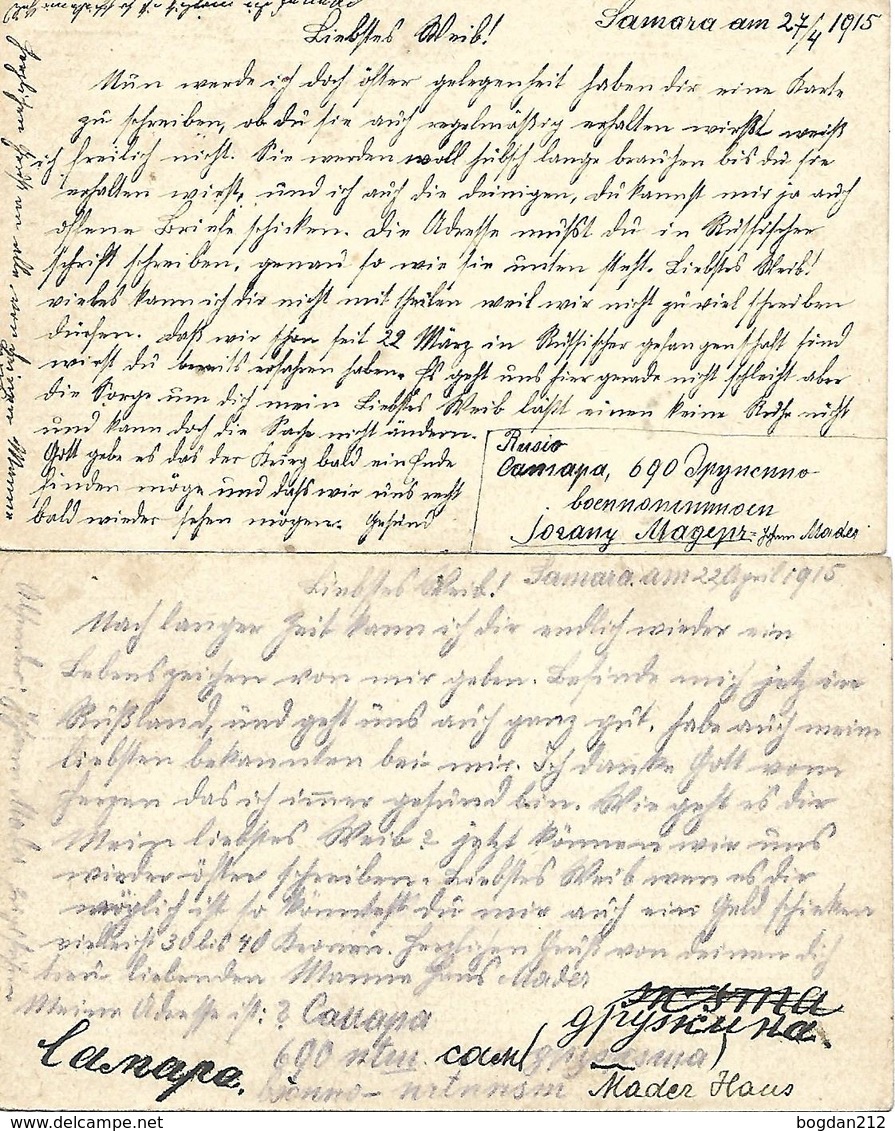 Liebstes Weib! Samara am 27/4 1915
Nun werde ich doch öfter gelegenheit haben dir eine Karte
zu schreiben, ob du sie auch regelmäßig erhalten wirst weiß
ich freilich nicht. Sie werden woll hübsch lange brauchen bis du sie
erhalten wirst, und ich auch die deinigen, du kannst mir ja auch
offene Briefe schicken. Die Adresse mußt du in Russischer
schrift schreiben, genau so wie sie unten steht. Liebstes Weib!
vieles kann ich dir nicht mit theilen weil wir nicht zu viel schreiben
dürfen. Daß wir schon seit 22 März in Russischer gefangenschaft sind
wirst du bereits erfahren haben. Es geht uns hier gerade nicht schlecht aber
die Sorge um dich mein Liebstes Weib läßt einen keine Ruhe nicht
und kann doch die Sache nicht ändern.
Gott gebe es das der Krieg bald ein Ende
finden möge und daß wir uns recht
bald wieder sehen mögen. Gesund
Rusio
Самара, 690
Иоганн Мадер Johann Mader
Liebstes Weib! Samara am 22 April 1915
Nach langer Zeit kann ich dir endlich wieder ein
Lebenszeichen von mir geben. Befinde mich jetz in
Rußland, und geht uns auch ganz gut, habe auch meine
liebsten bekannten bei mir. Ich danke Gott vom
Herzen das ich immer gesund bin. Wie geht es dir
Mein liebstes Weib? jetzt können wir uns
wieder öfter schreiben. Liebstes Weib wen es dir
möglich ist so könntest du mir auch ein Geld schicken
vielleicht 30 bis 40 Kronen. Herzlichen Gruß von deinen dich
treu liebenden Manne Hans Mader
Meine Adresse ist: ? Самара
дружина
Самара. 690 сам(
Mader Hans
bogdan212